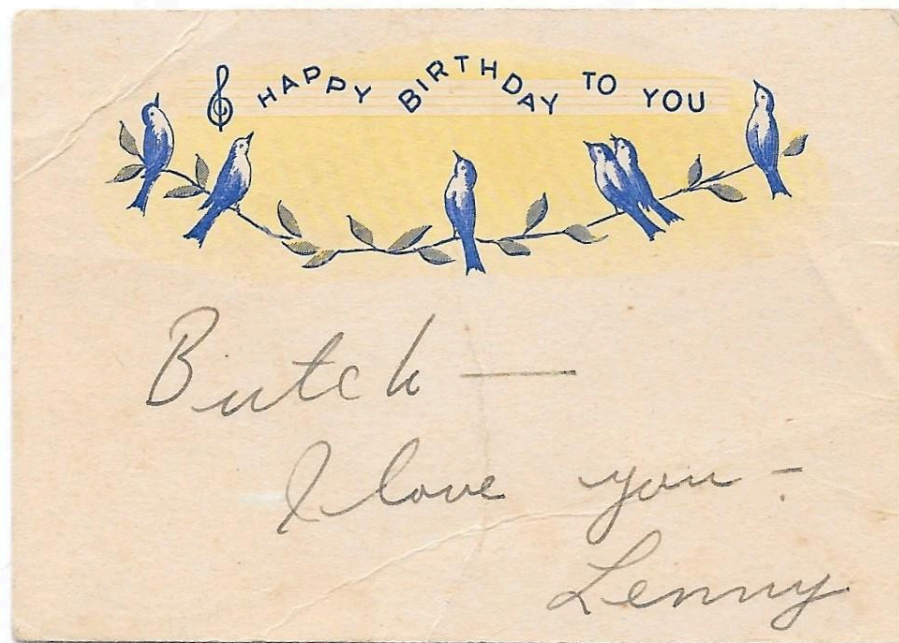 HAPPY BIRTHDAY TO YOU
Butch —
I love you –
Lenny